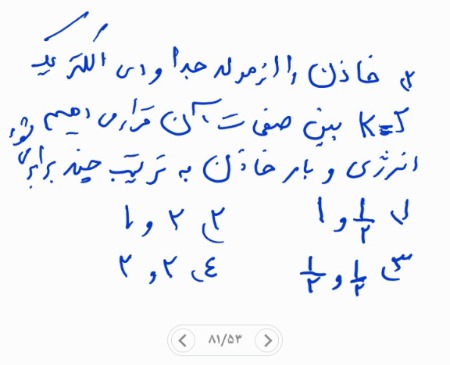 خازن را از مولد جدا و دی الکتریک
K=2 بین صفحات آن قرار می دهیم
انرژی و بار خازن به ترتیب چند برابر می شود
۱) ۱/۲ و ۱ ۲) ۲ و ۱
۳) ۱/۲ و ۱/۲ ۴) ۲ و ۲
۸۱/۵۳